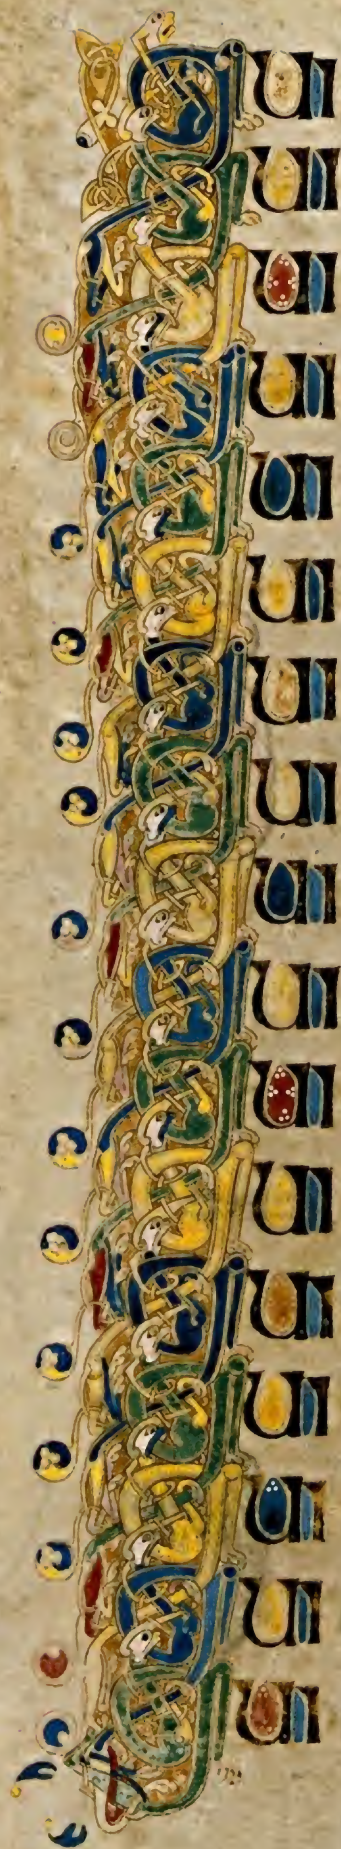 QUI
QUI
QUI
QUI
QUI
QUI
QUI
QUI
QUI
QUI
QUI
QUI
QUI
QUI
QUI
QUI
QUI